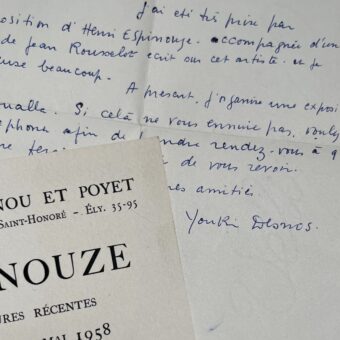 J'ai été très prise par
position d'Henri Espinouze. accompagnée d'un
de Jean Rousselot écrit sur cet artiste. et je
euse beaucoup.
A présent. j'organise une exposi
oualle. Si celà ne vous ennuie pas, voulez
éphoner afin de prendre rendez-vous à 9
de vous revoir.
res amitiés.
Youki Desnos.
NOU ET POYET
SAINT-HONORÉ – ÉLY. 35-95
NOUZE
URES RÉCENTES
MAI 1958